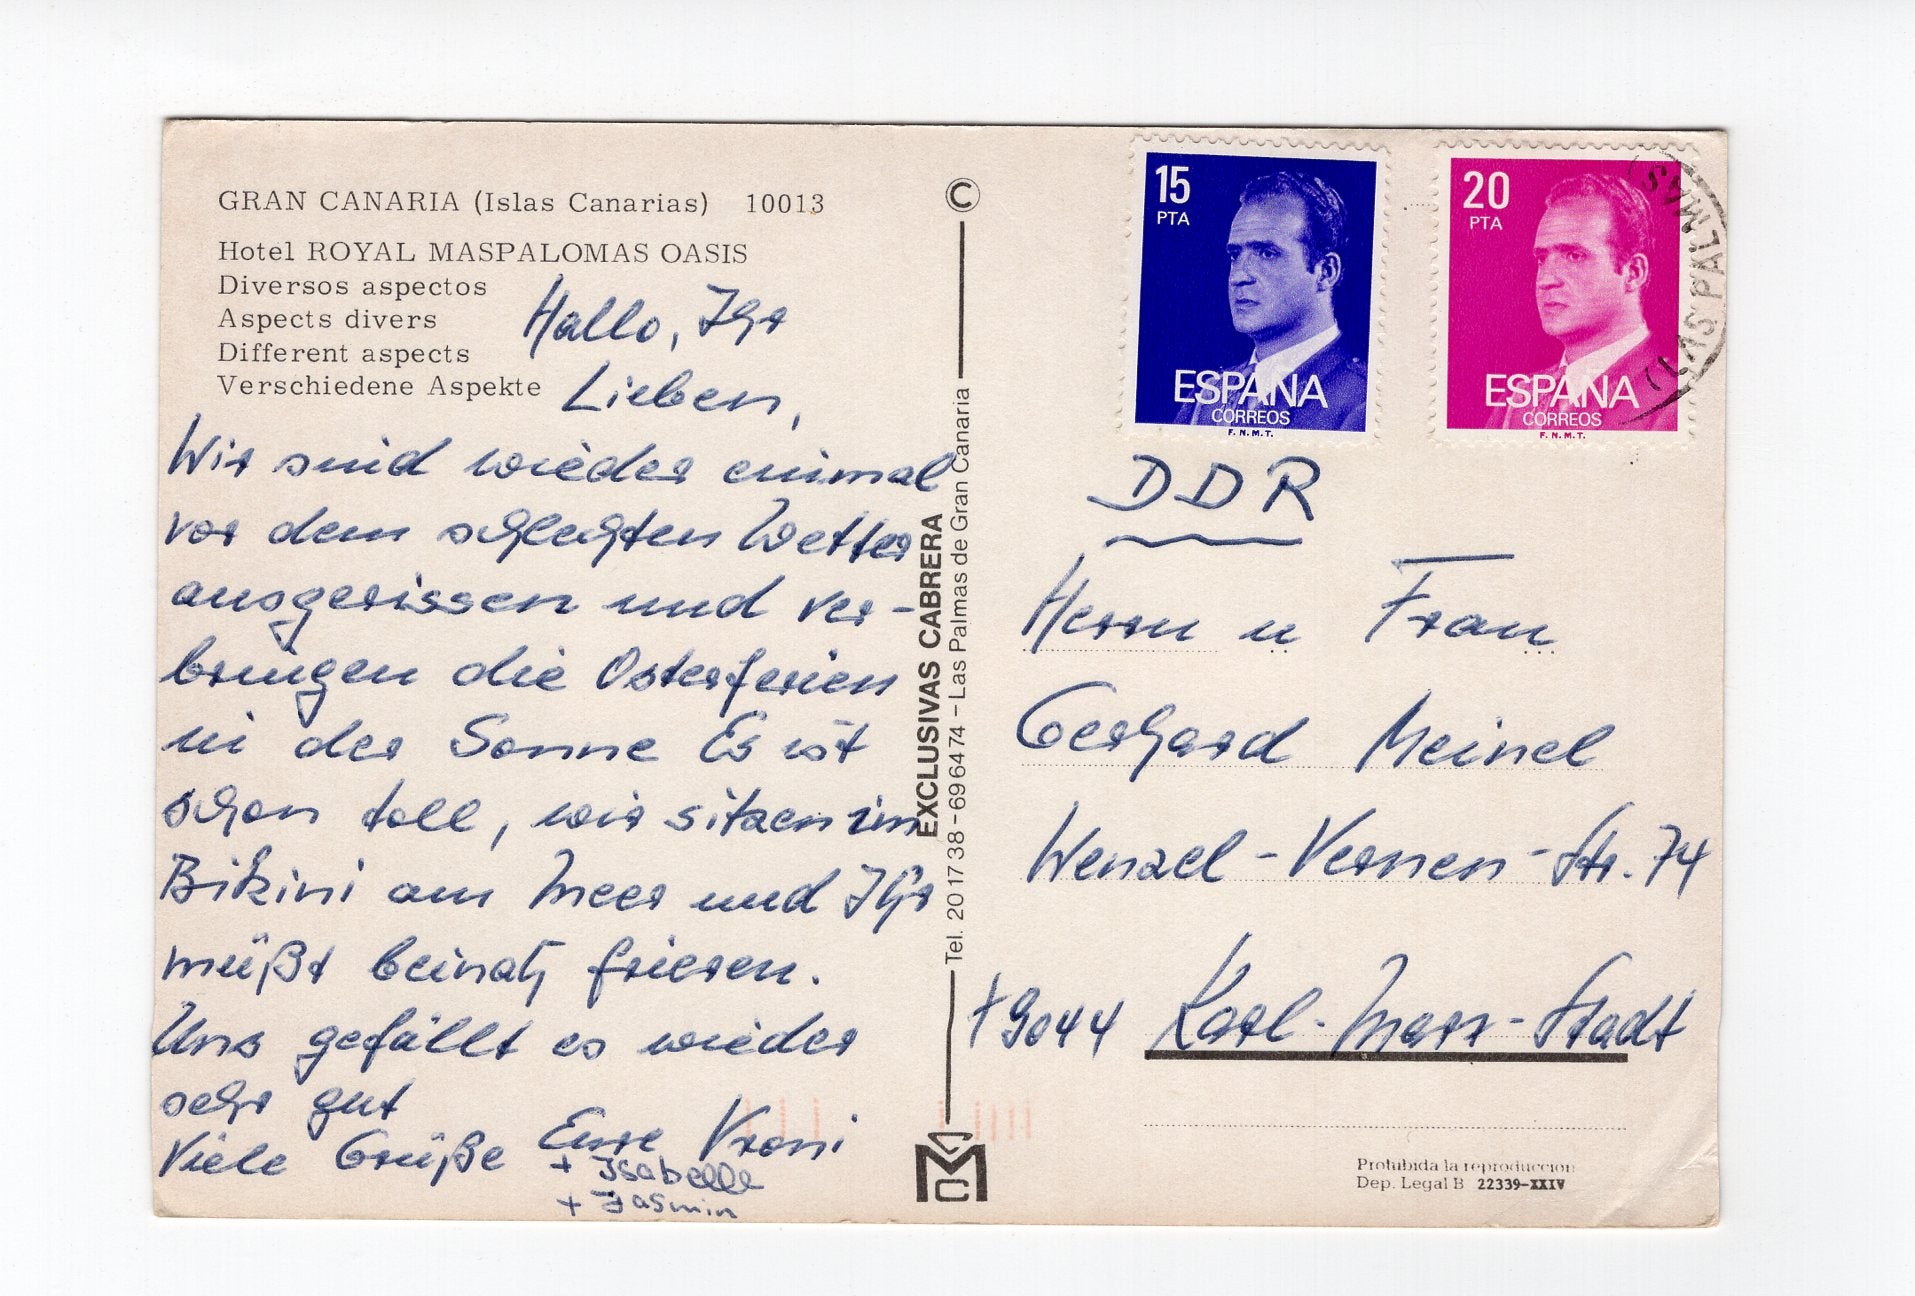 GRAN CANARIA (Islas Canarias) 10013
Hotel ROYAL MASPALOMAS OASIS
Diversos aspectos
Aspects divers
Different aspects
Verschiedene Aspekte
Hallo, Ihr
Lieben,
Wir sind wieder einmal
vor dem schlechten Wetter
ausgerissen und ver-
bringen die Osterferien
in der Sonne Es ist
schon toll, wir sitzen im
Bikini am Meer und Ihr
müßt beinah frieren.
Uns gefällt es wieder
sehr gut
Viele Grüße Eure Vroni
+ Isabelle
+ Jasmin
©
EXCLUSIVAS CABRERA
Tel. 20 17 38 - 69 64 74 - Las Palmas de Gran Canaria
MC
15
PTA
ESPAÑA
CORREOS
F.N.M.T.
20
PTA
ESPAÑA
CORREOS
F.N.M.T.
(LAS PALMAS)
DDR
Herrn u Frau
Gerhard Meinel
Wenzel-Verner-Str. 74
9044 Karl-Marx-Stadt
Prohibida la reproduccion
Dep. Legal B 22339-XXIV